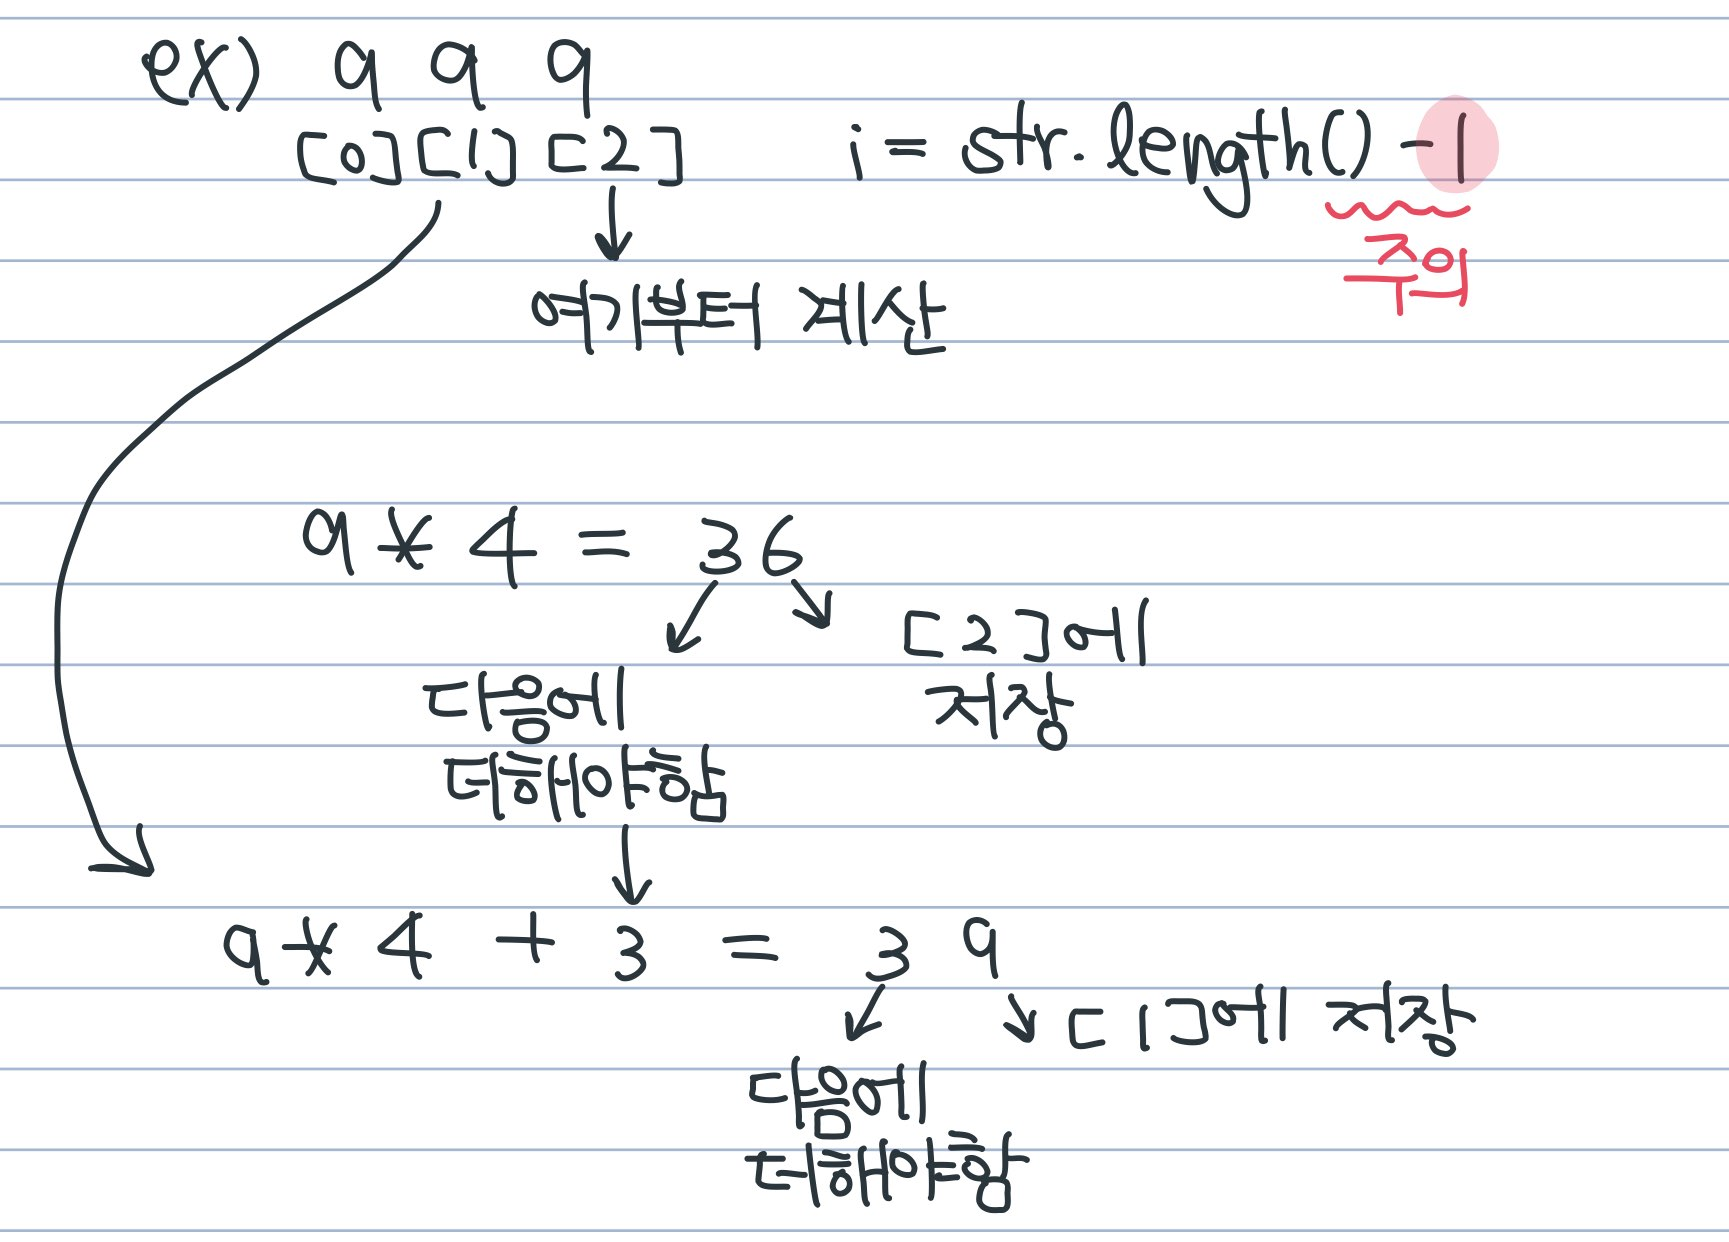 ex) 9 9 9
[0][1][2] i = str.length() -1
주의
여기부터 계산
9 * 4 = 36
[2]에
저장
다음에
더해야함
9 * 4 + 3 = 39
[1]에 저장
다음에
더해야함